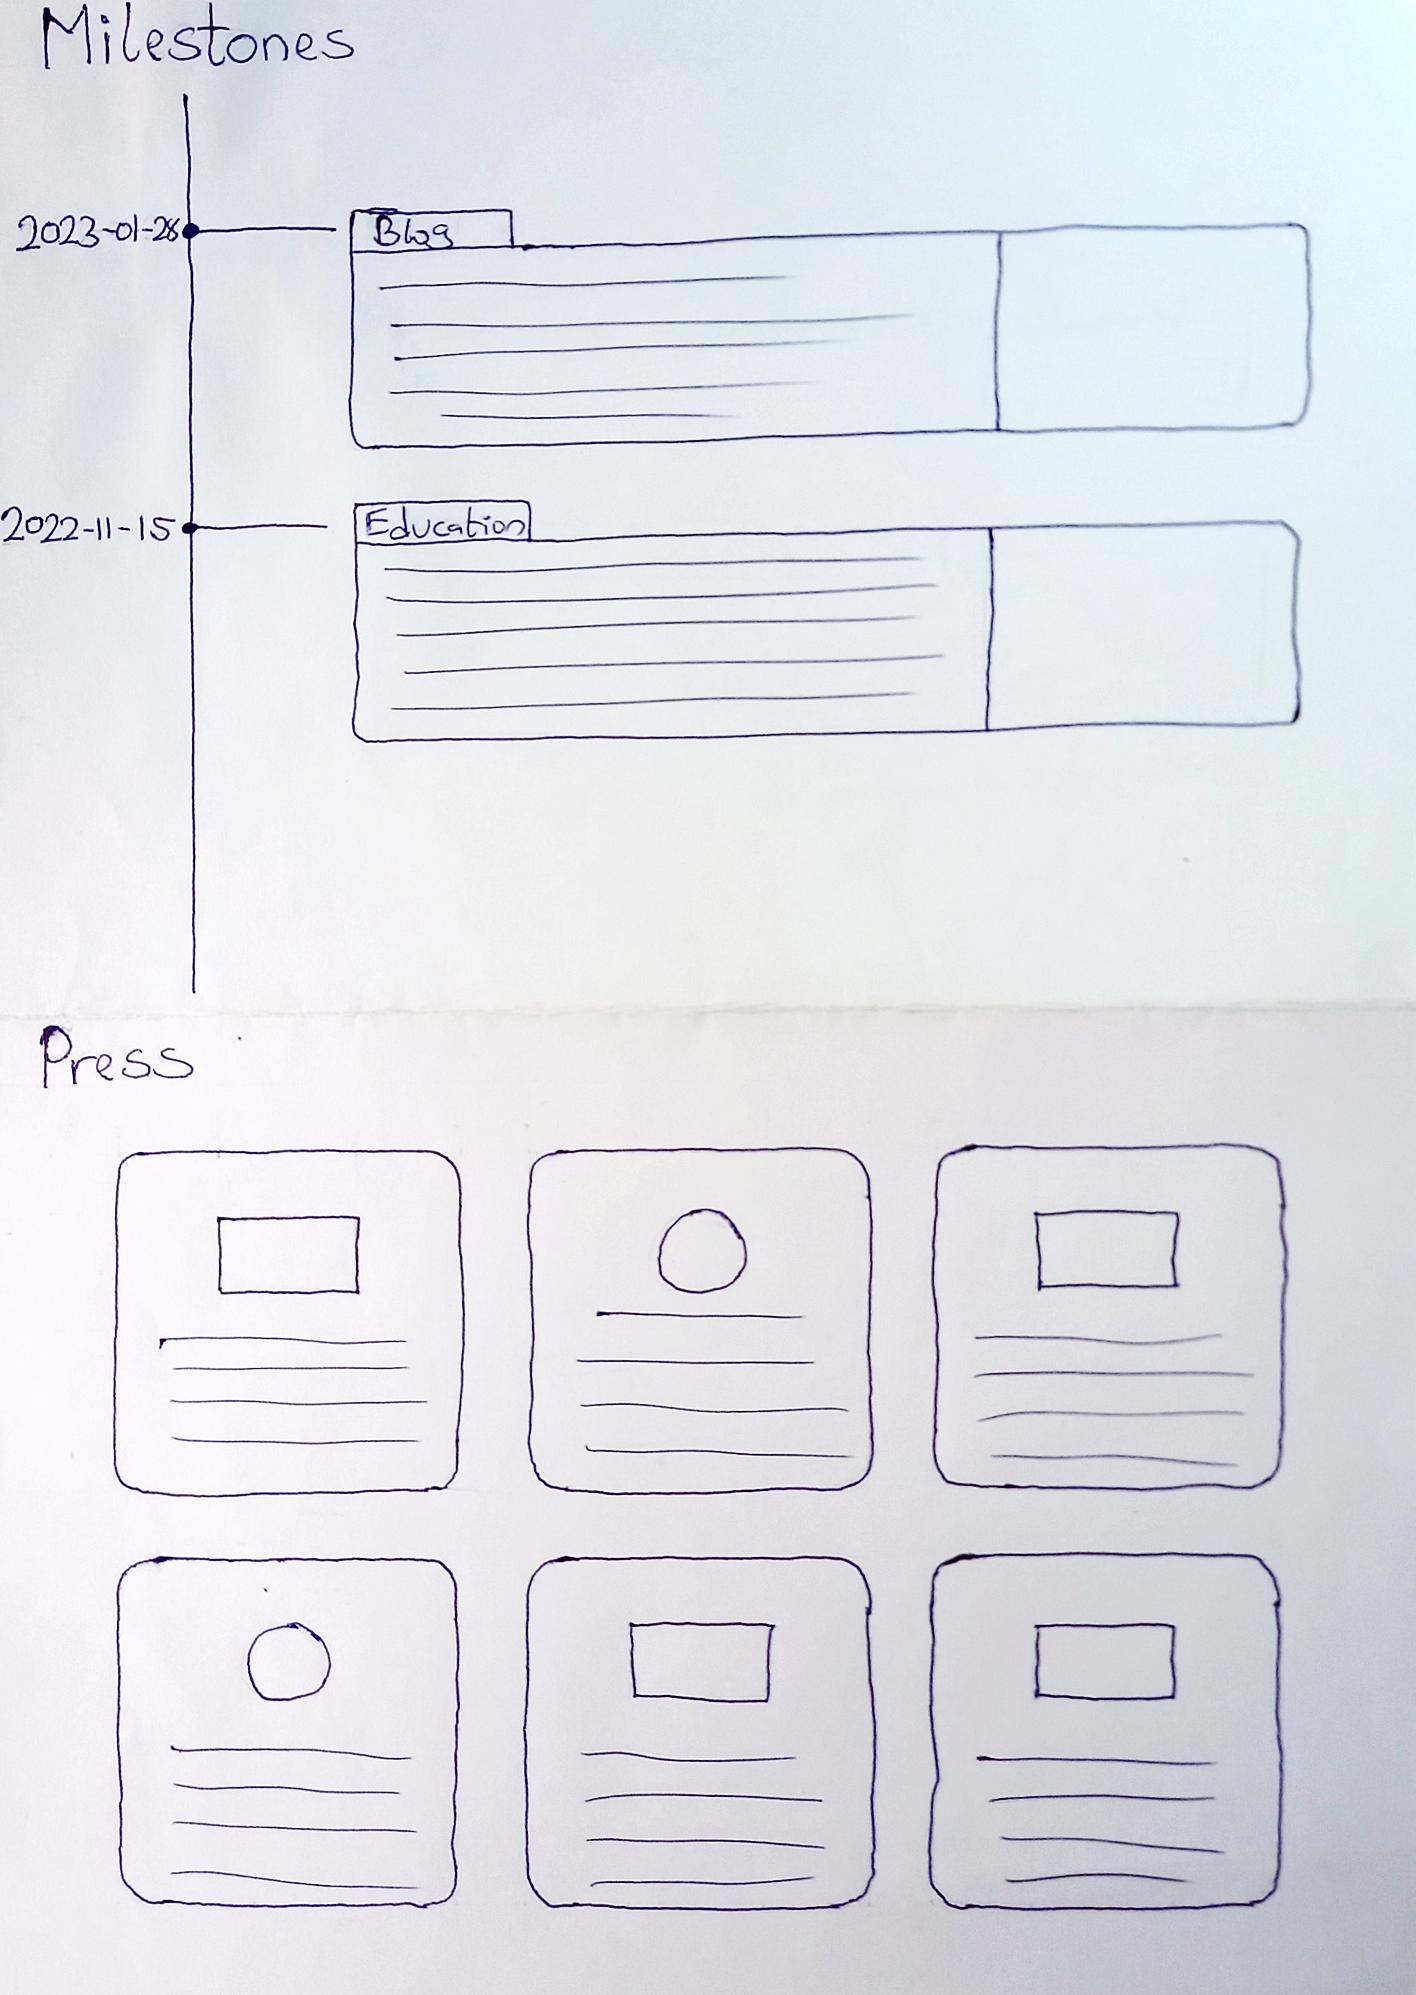 Milestones
2023-01-28
Blog
2022-11-15
Education
Press